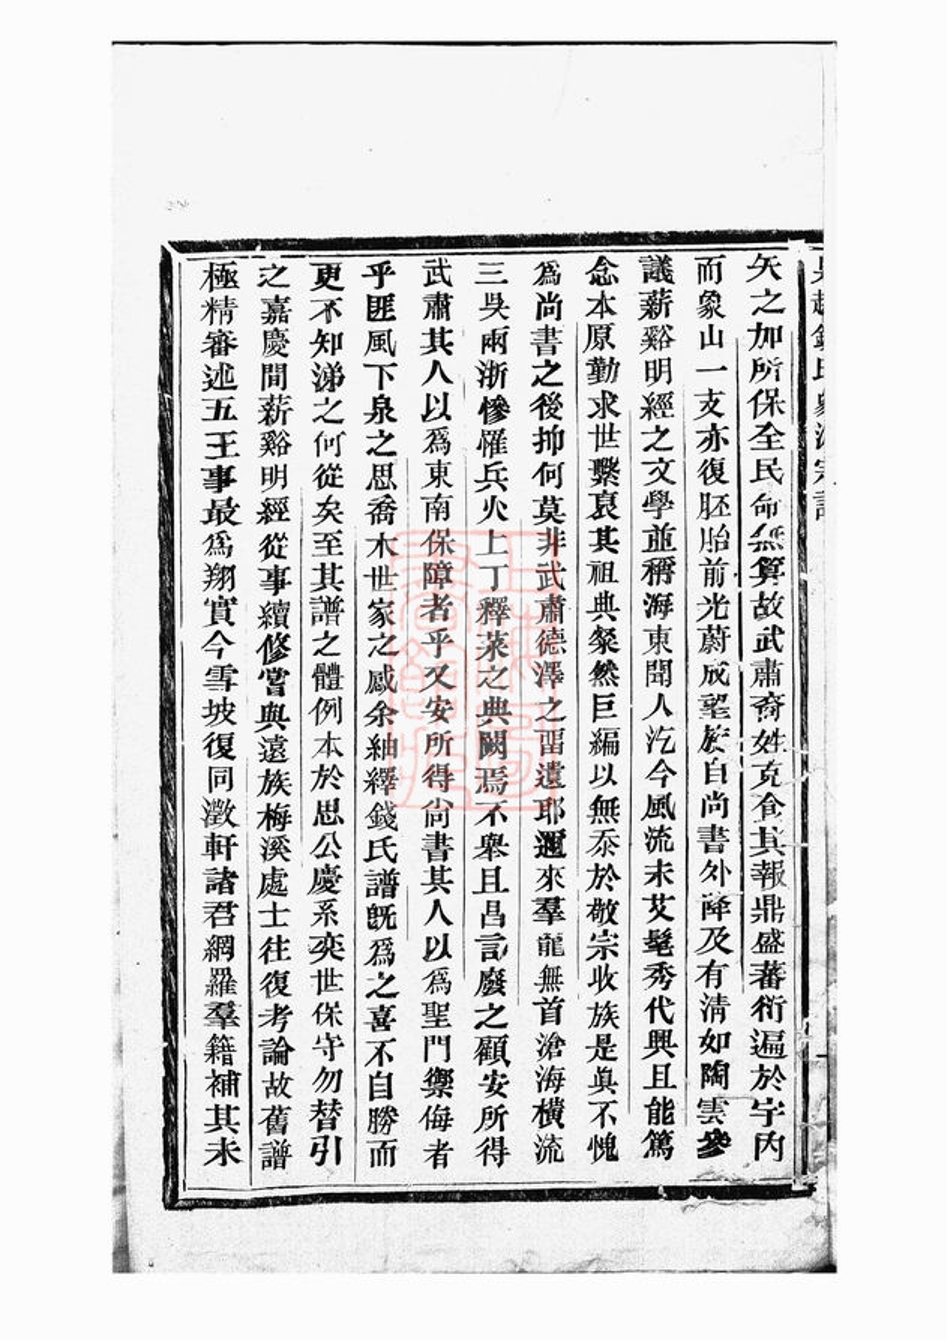 吳越錢氏象派宗譜
矢之加所保全民命無算故武肅裔姓克食其報鼎盛蕃衍遍於宇內
而象山一支亦復胚胎前光蔚成望族自尚書外降及有清如陶雲參
議薪谿明經之文學並稱海東聞人汔今風流未艾髦秀代興且能篤
念本原勤求世繫裒其祖典粲然巨編以無忝於敬宗收族是眞不愧
爲尚書之後抑何莫非武肅德澤之畱遺耶邇來羣龍無首滄海橫流
三吳兩浙慘罹兵火上丁釋菜之典闕焉不舉且昌言廢之顧安所得
武肅其人以爲東南保障者乎又安所得尙書其人以爲聖門禦侮者
乎匪風下泉之思喬木世家之感余紬繹錢氏譜旣爲之喜不自勝而
更不知涕之何從矣至其譜之體例本於思公慶系奕世保守勿替引
之嘉慶間薪谿明經從事續修嘗與遠族梅溪處士往復考論故舊譜
極精審述五王事最爲翔實今雪坡復同澂軒諸君網羅羣籍補其未